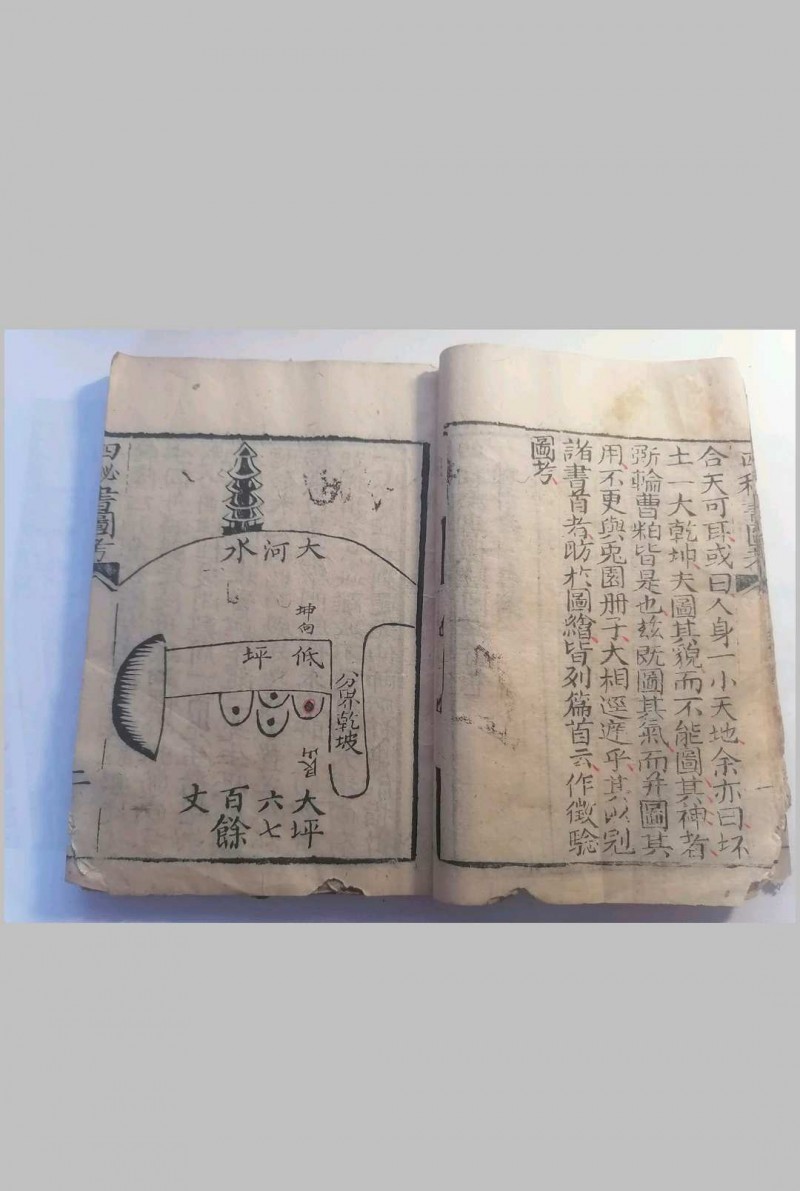 合天可耳或曰人身一小天地余亦曰坏
土一大乾坤夫圖其貌而不能圖其神者
斵輪曹粕皆是也茲既圖其氣而并圖其
用不更與兎園册子大相逕庭乎其以冠
諸書首者昉於圖繪皆列篇首云作徵驗
圖考
大河水
坤向
低坪
分界乾坡
艮山
大坪
六七
百餘
丈
四秘書圖考
二